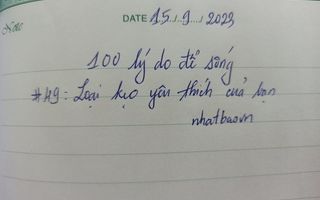 Note
DATE 15/9/2023
100 lý do để sống
#49: Loại kẹo yêu thích của bạn
nhatbaovn